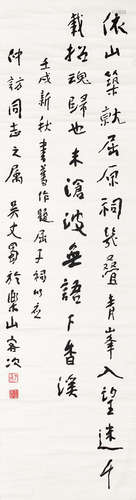 依山築就屈原祠髣疊青峯入望迷千
載招魂歸也未滄波無語下香溪
壬戌新秋書舊作題屈子祠以應
仲訪同志之属 吴丈蜀於樂山客次